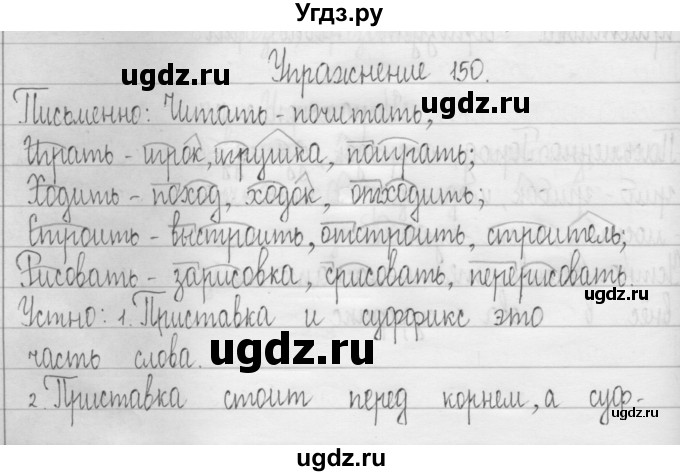 Угдз.ру
ugdz.ru
Упражнение 150.
ugdz.ru
Письменно: Читать - почитать;
Играть - игрок, игрушка, поиграть;
ugdz.ru
Ходить - поход, ходок, отходить;
Строить - выстроить, отстроить, строитель;
Рисовать - зарисовка, срисовать, перерисовать.
ugdz.ru
Устно: 1. Приставка и суффикс это
ugdz.ru
часть слова.
2. Приставка стоит перед корнем, а суф-
ugdz.ru
Угдз.ру